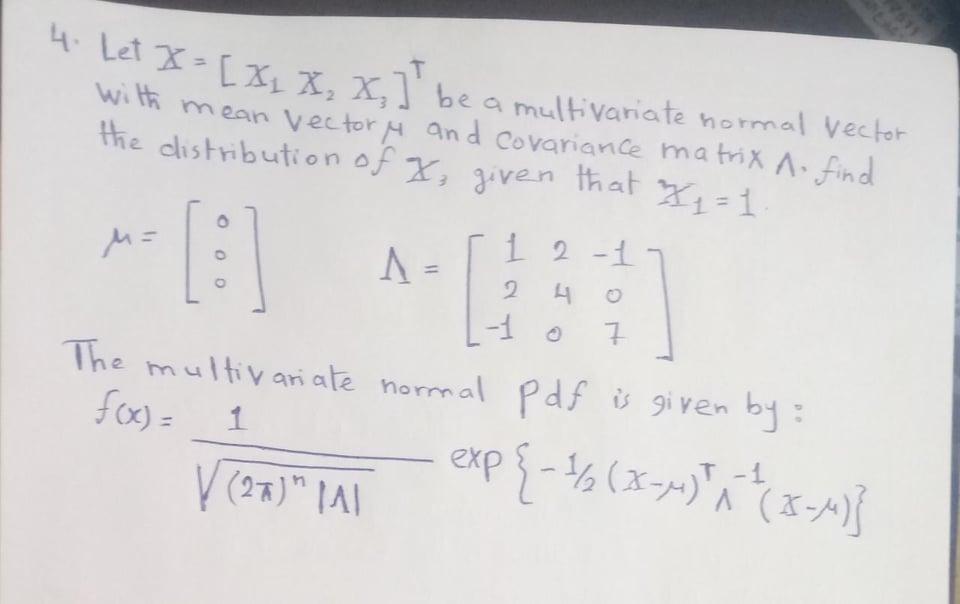 4. Let X = [ X₁ X₂ X₃ ]ᵀ be a multivariate normal vector
with mean vector μ and covariance matrix Λ. find
the distribution of X₃ given that X₁ = 1.
μ = [ 0 0 0 ] Λ = [ 1 2 -1
2 4 0
-1 0 7 ]
The multivariate normal pdf is given by :
f(x) = 1 / √(2π)ⁿ |Λ| exp { -1/2 (X-μ)ᵀ Λ⁻¹ (X-μ) }